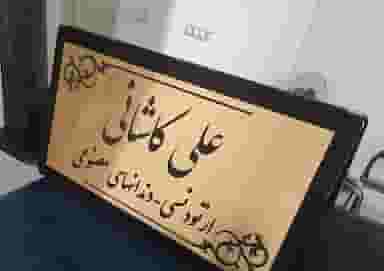 علی کاشانی
ارتودنسی - دندانهای مصنوعی